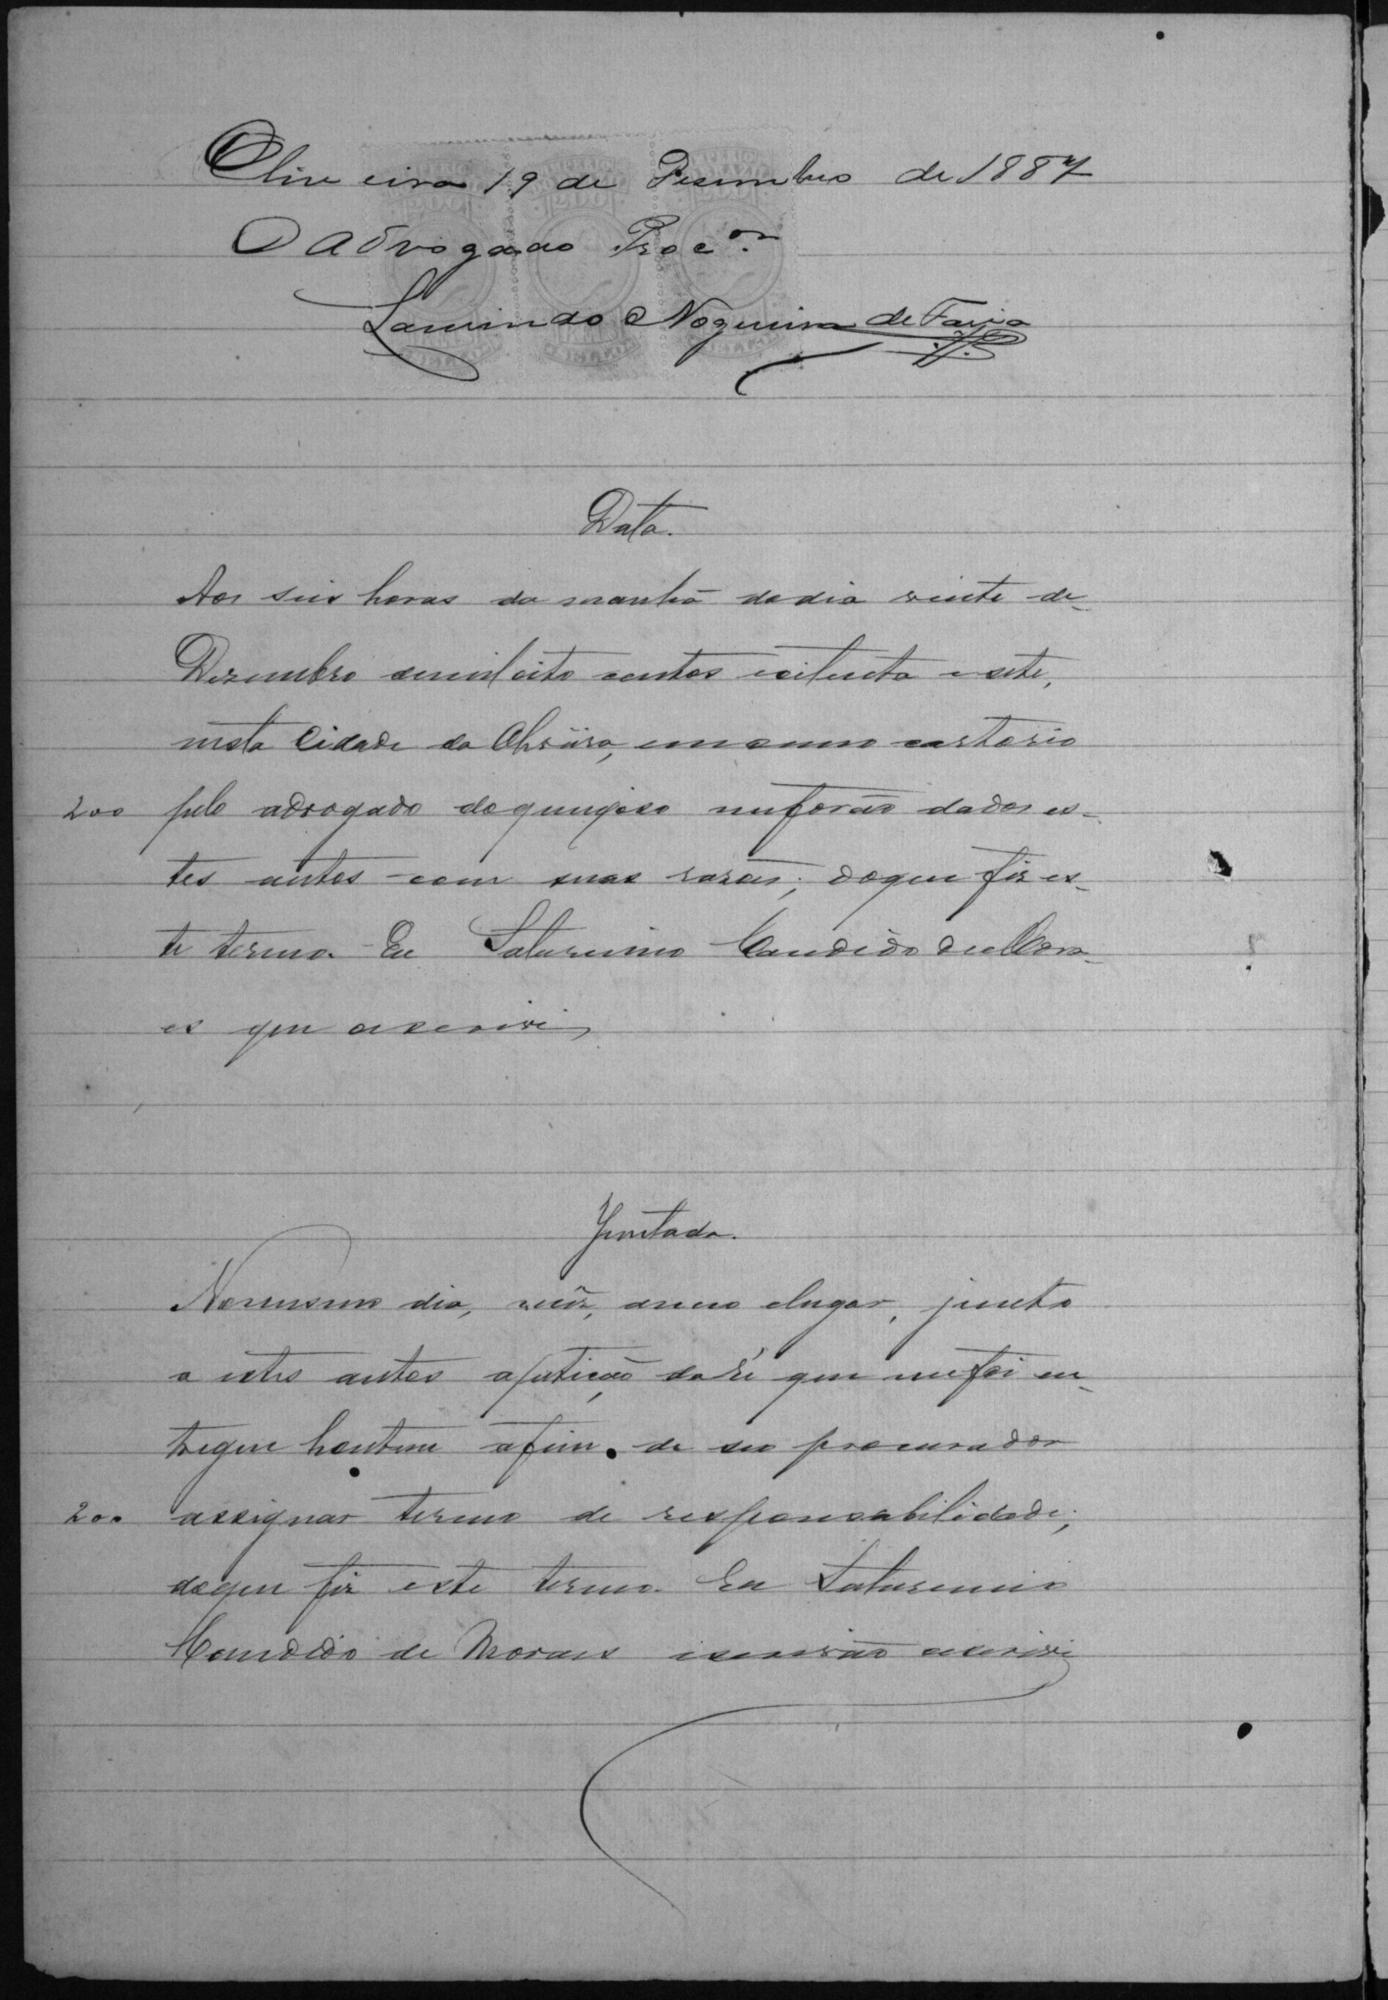 Oliveira 19 de Desembro de 1887
O Advogado Proc.or
Laurindo Nogueira de Faria
Data.
Aos seis horas da manhã do dia vinte de
Dezembro de mil oito centos e oitenta e sete,
nesta Cidade da Oliveira, em meu cartorio
200 pelo advogado me forão dados es-
tes autos com suas rasões; do que fiz es-
te termo. Eu Saturnino Candido de Mora-
es que o escrevi
Juntada.
No mesmo dia, mez, anno e lugar, junto
a estes autos a petição da ré que me foi en-
tregue hontem afim de seo procurador
200 assignar termo de responsabilidade;
do que fiz este termo. Eu Saturnino
Candido de Moraes escrivão o escrivi